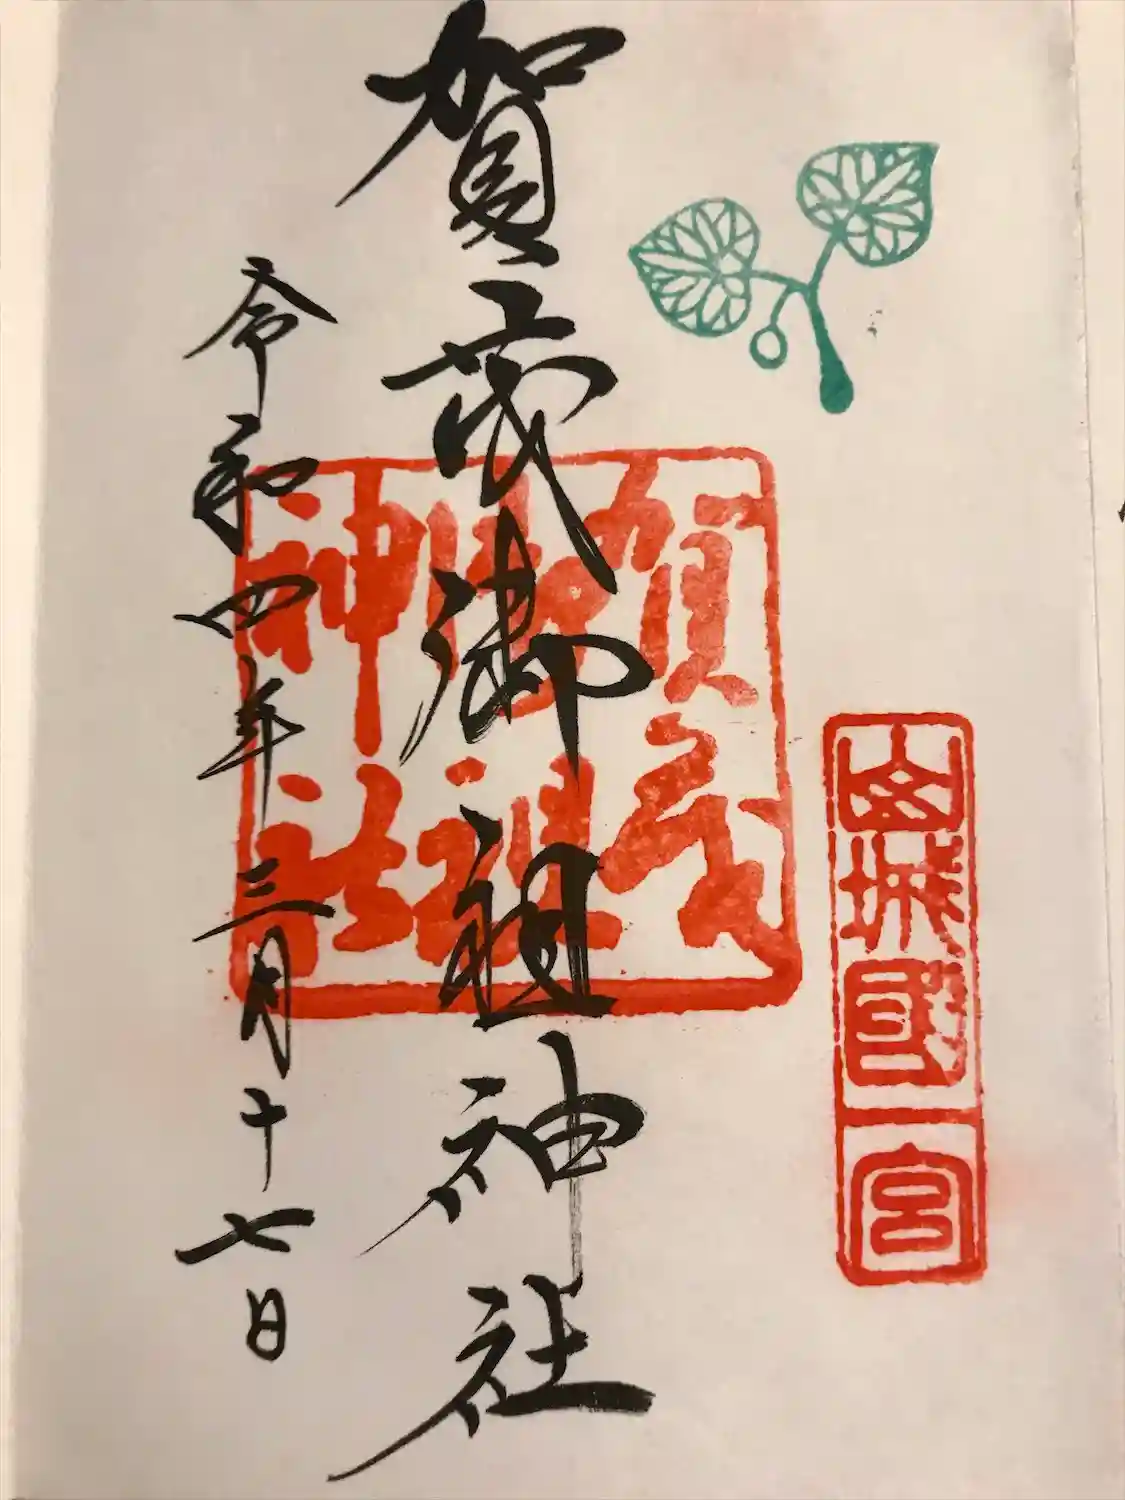 山城國一宮
賀茂御祖神社
賀茂
御祖
神社
令和四年三月十七日